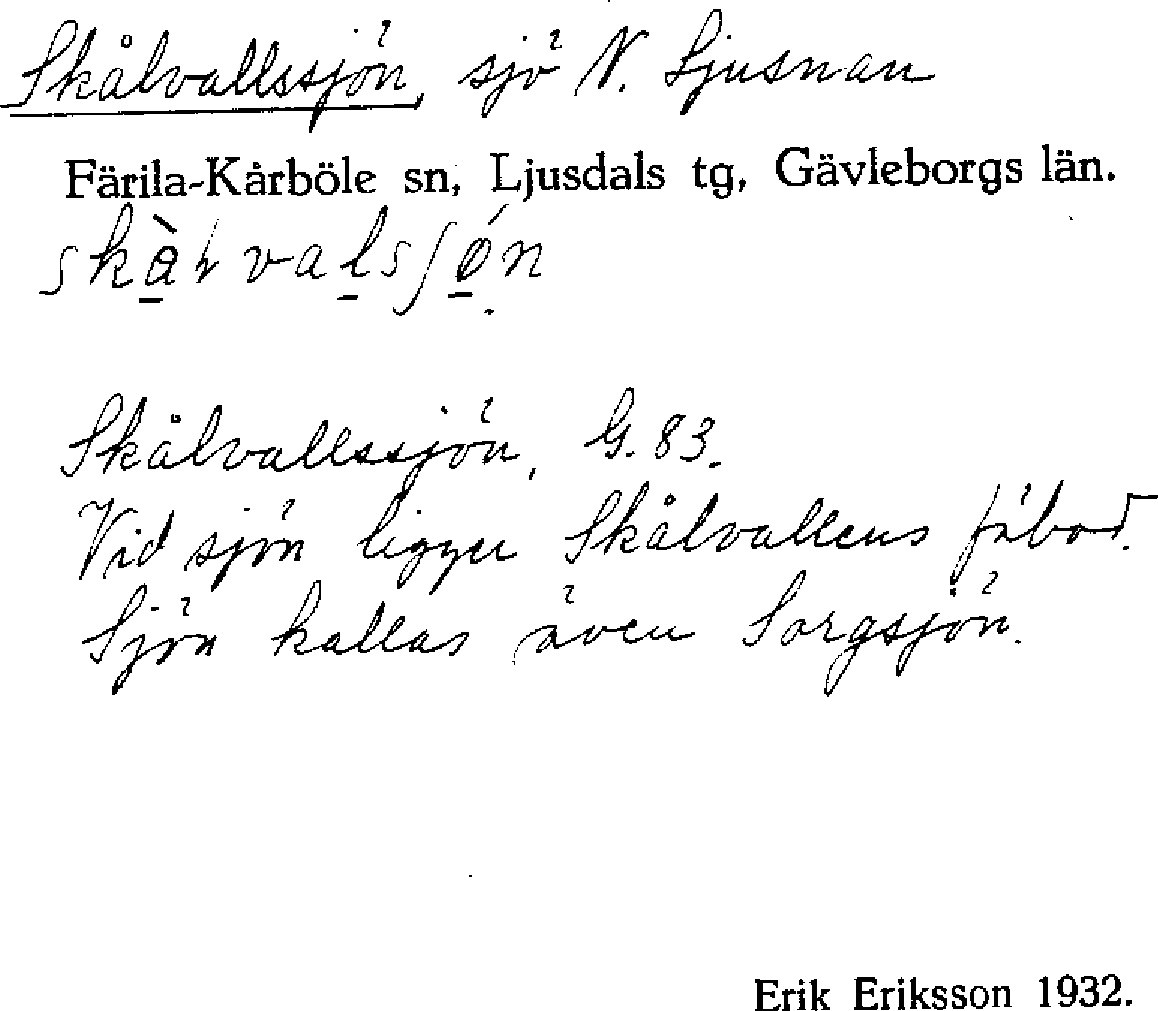 Skålvallssjön, sjö N. Ljusnan
Färila-Kårböle sn, Ljusdals tg, Gävleborgs län.
Skålvallssjön, G. 83.
Vid sjön ligger Skålvallens fäbod.
Sjön kallas även Sorgsjön.
Erik Eriksson 1932.